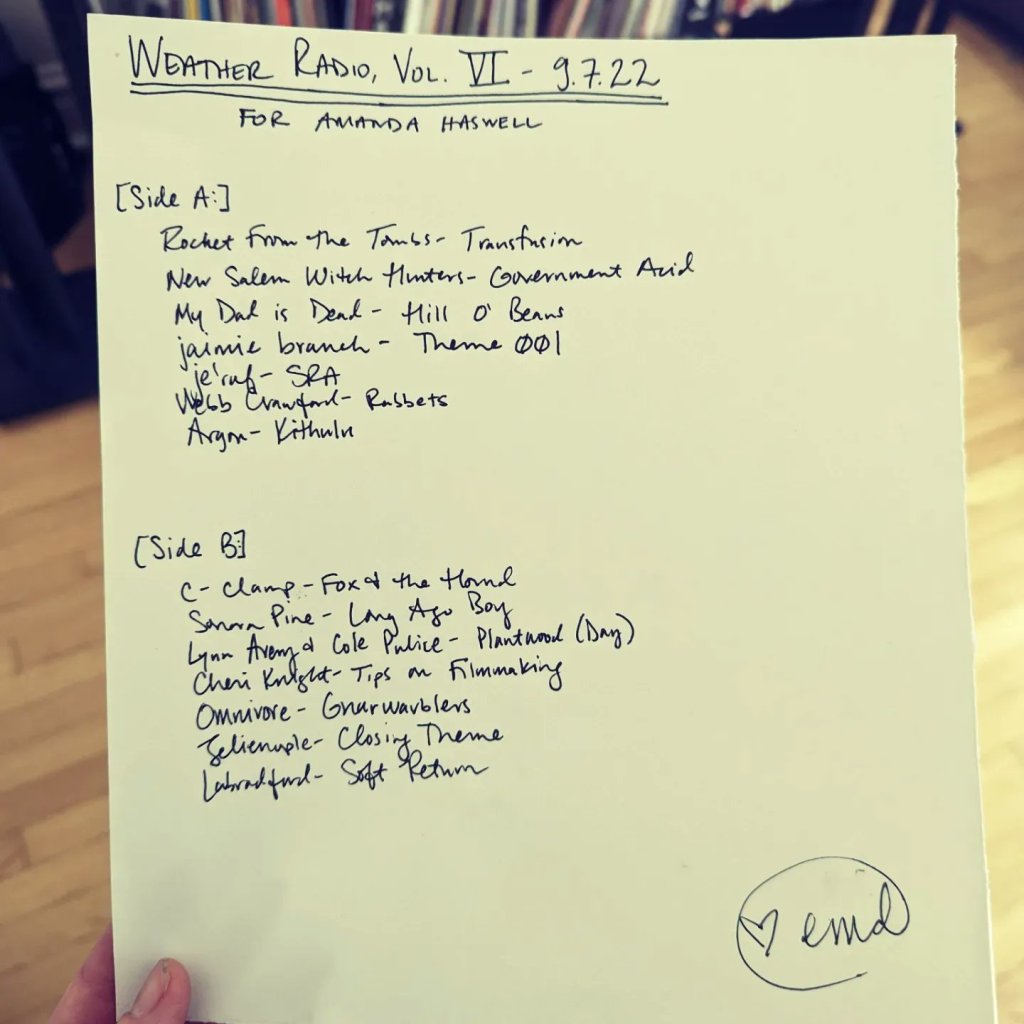 WEATHER RADIO, VOL. VI - 9.7.22
FOR AMANDA HASWELL
[Side A:]
Rocket From the Tombs - Transfusion
New Salem Witch Hunters - Government Acid
My Dad is Dead - Hill O' Beans
jaimie branch - Theme 001
je'raf - SRA
Webb Crawford - Rabbets
Argon - Kithuln
[Side B:]
C-Clamp - Fox & the Hound
Sonora Pine - Long Ago Boy
Lynn Avery & Cole Pulice - Plantwood (Day)
Cheri Knight - Tips on Filmmaking
Omnivore - Gnarwarblers
Zelienople - Closing Theme
Labradford - Soft Return
♡ emd